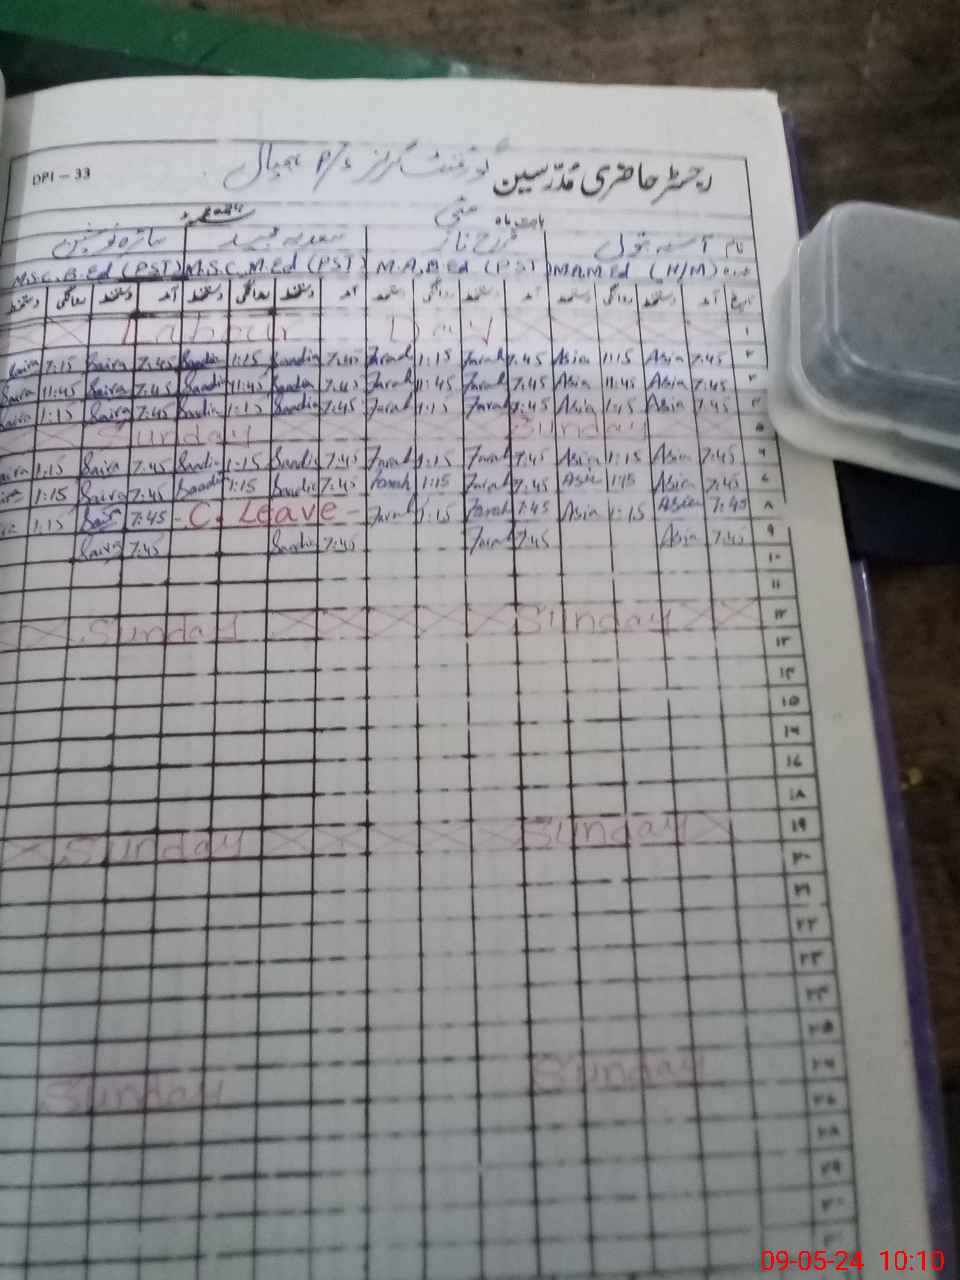 DPI - 33
رجسٹر حاضری مُدرّسین گورنمنٹ گرلز P/S
بابت ماہ مئی 2024
نام آسیہ بتول فرح ناز سعدیہ مجید سائرہ نورین
عہدہ M.A.M.Ed (H/M) M.A.B.Ed (PST) M.S.C.M.Ed (PST) M.S.C.B.Ed (PST)
تاریخ آمد دستخط روانگی دستخط آمد دستخط روانگی دستخط آمد دستخط روانگی دستخط آمد دستخط روانگی دستخط
۱ Labour Day
۲ 7:45 Asia 1:15 Asia 7:45 Farah 1:15 Farah 7:45 Saadia 1:15 Saadia 7:45 Saira 7:15 Saira
۳ 7:45 Asia 11:45 Asia 7:45 Farah 11:45 Farah 7:45 Saadia 11:45 Saadia 7:45 Saira 11:45 Saira
۴ 7:45 Asia 1:15 Asia 7:45 Farah 1:15 Farah 7:45 Saadia 1:15 Saadia 7:45 Saira 1:15 Saira
۵ Sunday Sunday
۶ 7:45 Asia 1:15 Asia 7:45 Farah 1:15 Farah 7:45 Saadia 1:15 Saadia 7:45 Saira 1:15 Saira
۷ 7:45 Asia 1:15 Asia 7:45 Farah 1:15 Farah 7:45 Saadia 1:15 Saadia 7:45 Saira 1:15
۸ 7:45 Asia 1:15 Asia 7:45 Farah 1:15 Farah - C. Leave - 7:45 1:15
۹ 7:45 Asia 7:45 Farah 7:45 Saadia 7:45 Saira
۱۰
۱۱
۱۲ Sunday Sunday
۱۳
۱۴
۱۵
۱۶
۱۷
۱۸
۱۹ Sunday Sunday
۲۰
۲۱
۲۲
۲۳
۲۴
۲۵
۲۶ Sunday Sunday
۲۷
۲۸
۲۹
۳۰
09-05-24 10:10